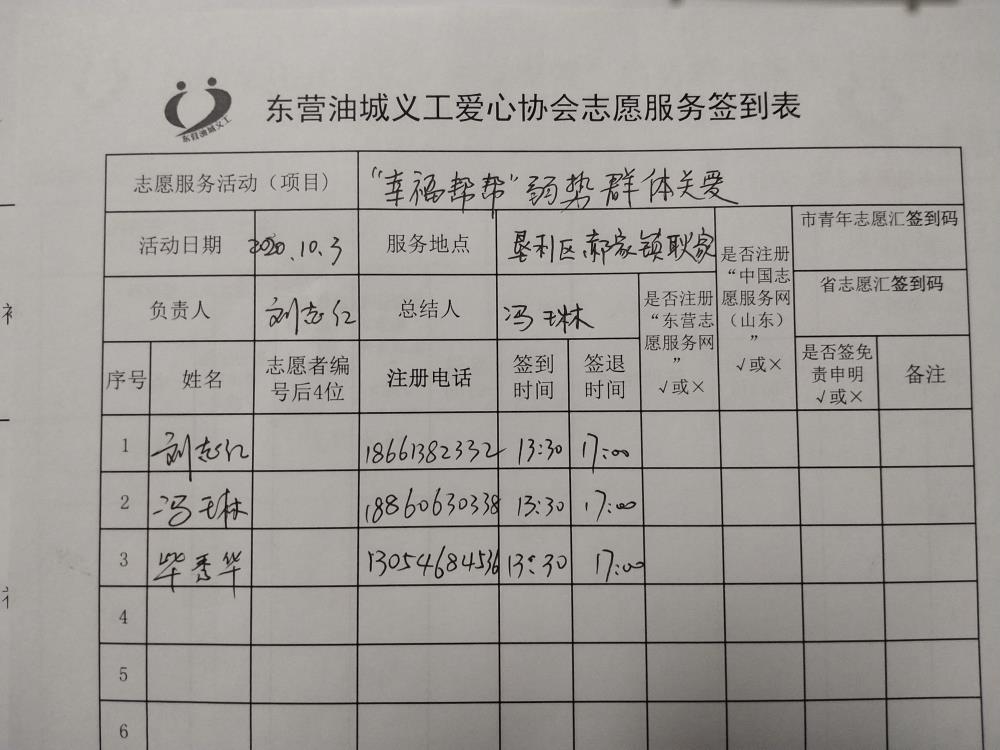 东营油城义工
东营油城义工爱心协会志愿服务签到表
志愿服务活动（项目） “幸福帮帮”弱势群体关爱
活动日期 2020.10.3 服务地点 垦利区郝家镇耿家
是否注册“中国志愿服务网（山东）”√或×
市青年志愿汇签到码
省志愿汇签到码
负责人 刘志仁 总结人 冯玉琳
是否注册“东营志愿服务网”√或×
序号 姓名 志愿者编号后4位 注册电话 签到时间 签退时间 是否签免责申明√或× 备注
1 刘志仁 18661382332 13:30 17:00
2 冯玉琳 18860630338 13:30 17:00
3 毕秀华 13054684536 13:30 17:00
4
5
6